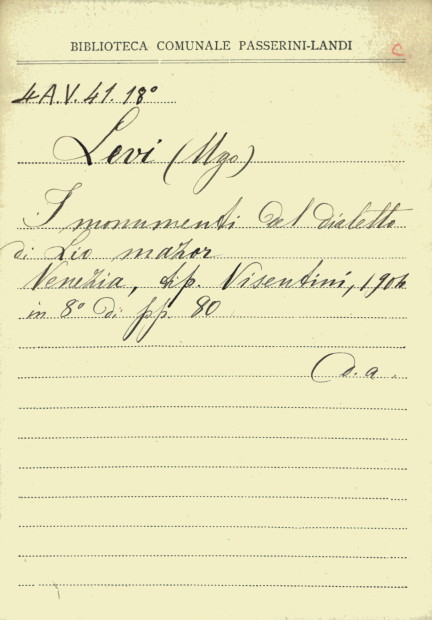 BIBLIOTECA COMUNALE PASSERINI-LANDI
C
4 A.V. 41. 18°
Levi (Ugo)
I monumenti del dialetto
di Lio mazor
Venezia, tip. Visentini, 1904
in 8° di pp. 80
D. a.